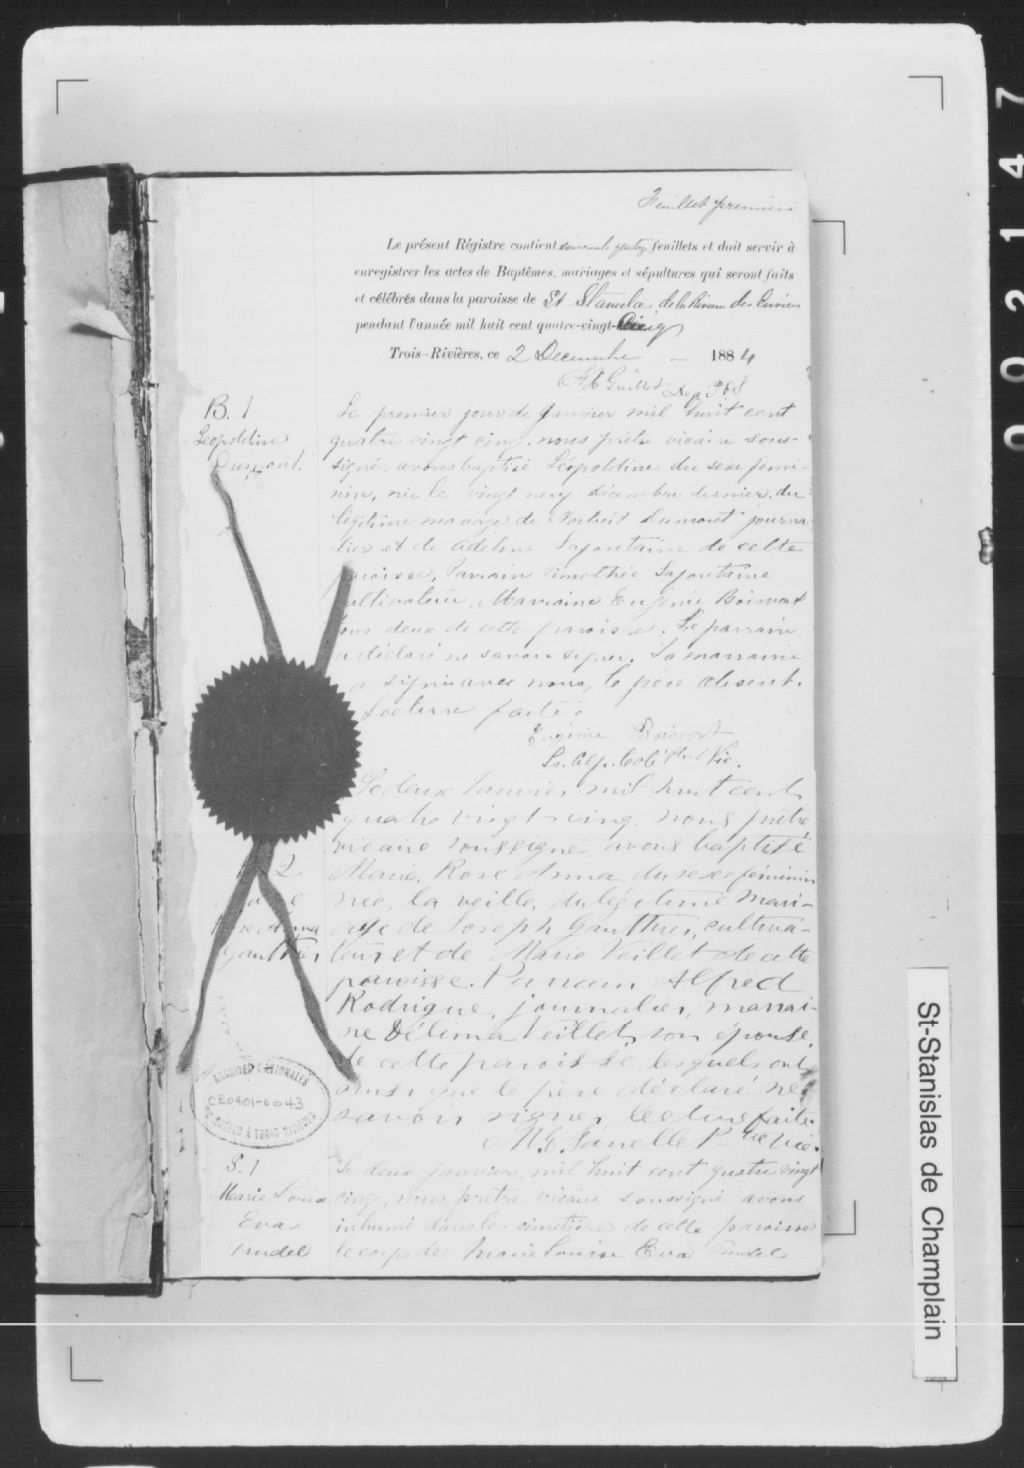 Feuillet premier
Le présent Régistre contient soixante quatre feuillets et doit servir à
enregistrer les actes de Baptêmes, mariages et sépultures qui seront faits
et célébrés dans la paroisse de St Stanislas de la Rivière des Envies
pendant l'année mil huit cent quatre-vingt-Cinq
Trois-Rivières, ce 2 Decembre – 1884
Guillet
B. 1
Léopoldine
Dumont.
Le premier jour de Janvier mil huit cent
quatre vingt cinq, nous prêtre vicaire sous-
signé, avons baptisé Léopoldine du sexe femi-
nin, née le vingt neuf décembre dernier, du
légitime mariage de Norbert Dumont journa
lier et de Adéline Lafontaine de cette
paroisse, Parrain Timothée Lafontaine
cultivateur, Marraine Eugénie Boisvert
tous deux de cette paroisse. Le parrain
a déclaré ne savoir signer. La marraine
a signé avec nous, le père absent.
Lecture faite.
Eugénie Boisvert
Ptre Vic.
2
Gauthier
Le deux Janvier mil huit cent
quatre vingt cinq, nous prêtre
vicaire soussigné, avons baptisé
Marie, Rose Anna, du sexe féminin
née, la veille, du légitime mari-
age de Joseph Gauthier, cultiva-
teur et de Marie Veillet de cette
paroisse. Parrain Alfred
Rodrigue, journalier, marrai-
ne Délima Veillet, son épouse,
de cette paroisse, lesquels ont
ainsi que le père déclaré ne
savoir signer, lecture faite.
Ptre Vic.
ARCHIVES NATIONALES
CE0401-0043
DU QUÉBEC À TROIS-RIVIÈRES
S. 1
Marie Louise
Eva
Trudel
Le deux janvier, mil huit cent quatre vingt
cinq, nous prêtre vicaire soussigné avons
inhumé dans le cimetière de cette paroisse
le corps de Marie Louise Eva Trudel
St-Stanislas de Champlain
002147